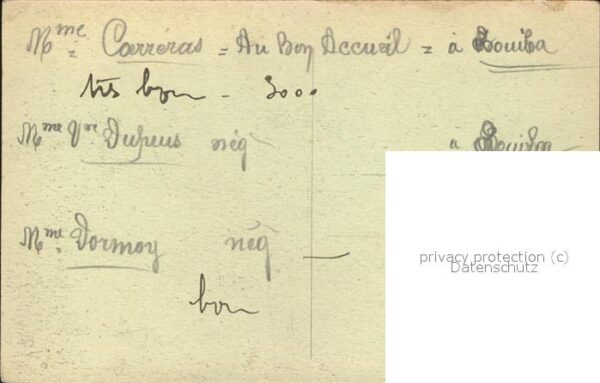 Mme Carréras = Au Bon Accueil = à Rouiba
très bon - 3000
Mme Vve Dupuis nég à Rouiba
Mme Dormoy nég —
bon
privacy protection (c)
Datenschutz